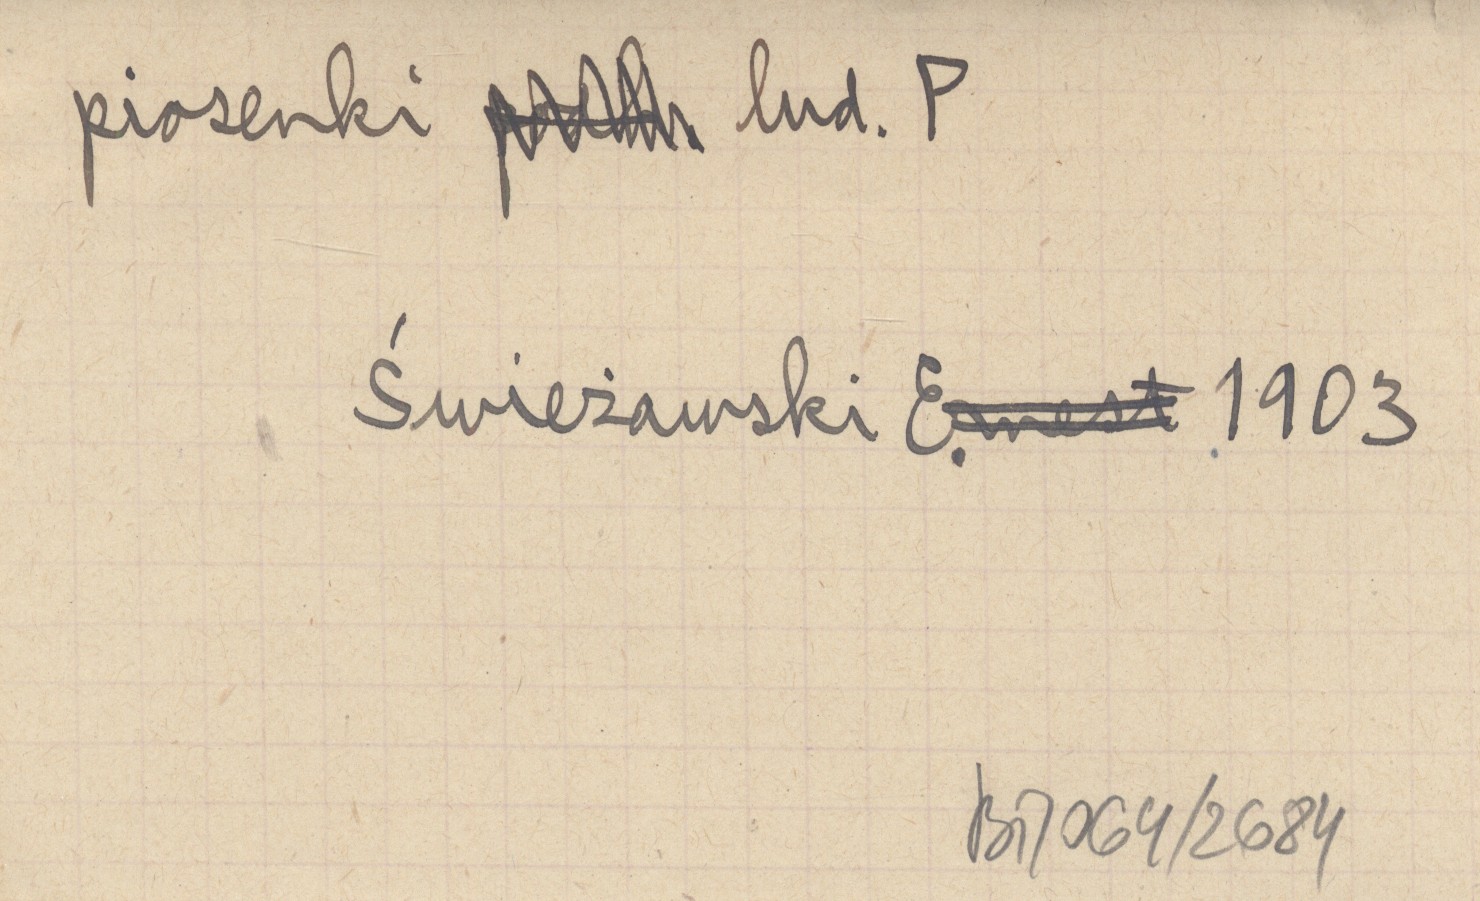 piosenki lud. P
Świeżawski E. 1903
BI7064/2684